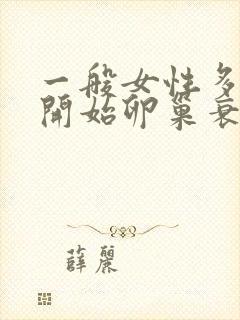 一般女性多
開始卵巢衰
薛麗